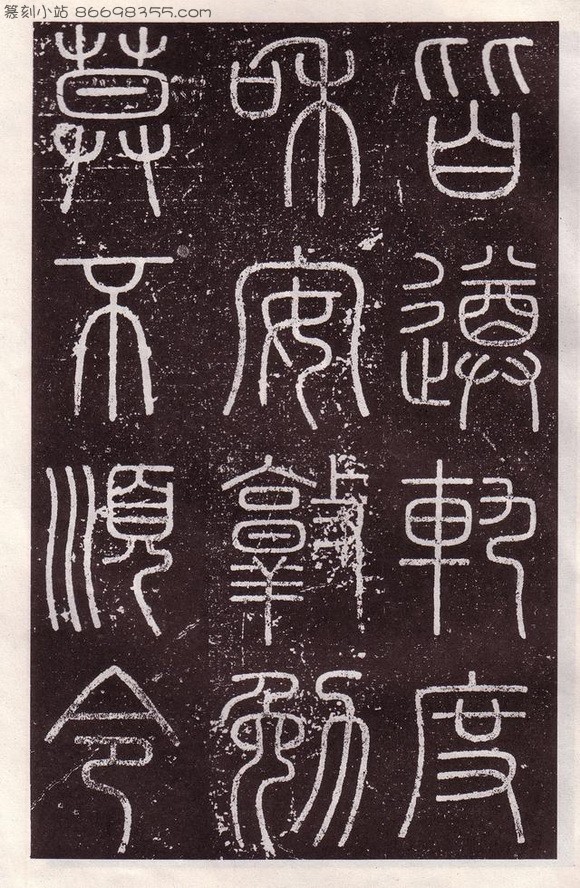 篆刻小站 86698355.com
皆遵軌度
和安敦勉
莫不順令